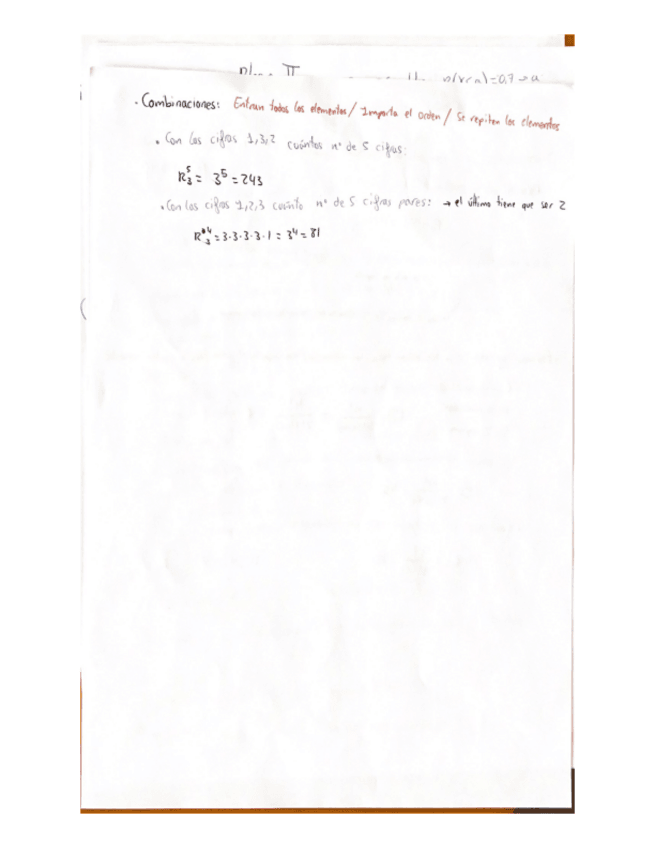 II p(x<a)=0,7→a
· Combinaciones: Entran todos los elementos / Importa el orden / Se repiten los elementos
• Con las cifras 1,3,2 cuántos nº de 5 cifras:
R₃⁵ = 3⁵ = 243
• Con las cifras 1,2,3 cuánto nº de 5 cifras pares: → el último tiene que ser 2
R₃⁴ = 3·3·3·3·1 = 3⁴ = 81